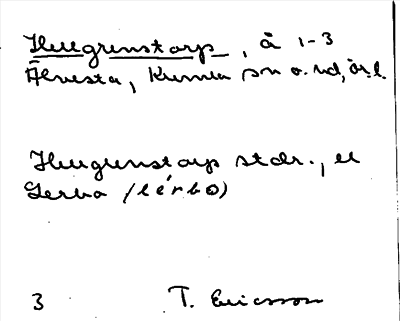 Hullgrenstorp, å 1-3
Älvesta, Kumla sn o. hd, ör. l.
Hullgrenstorp stdr., u
Lerbo (lérbo)
3 T. Ericsson